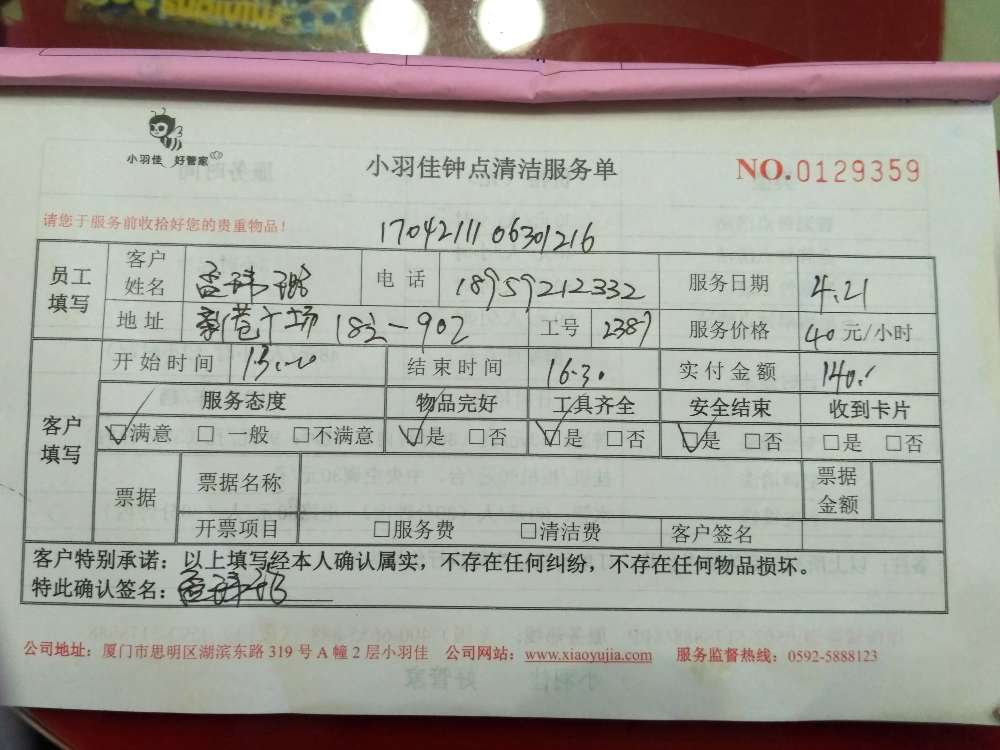 小羽佳 好管家
小羽佳钟点清洁服务单
NO.0129359
请您于服务前收拾好您的贵重物品！
1704211106301216
员工填写 客户姓名 电话 18959212332 服务日期 4.21
地址 广场 18 - 902 工号 2387 服务价格 40元/小时
客户填写 开始时间 13:00 结束时间 16:30 实付金额 140.
服务态度 物品完好 工具齐全 安全结束 收到卡片
☑满意 □一般 □不满意 ☑是 □否 ☑是 □否 ☑是 □否 □是 □否
票据 票据名称 票据金额
开票项目 □服务费 □清洁费 客户签名
客户特别承诺：以上填写经本人确认属实，不存在任何纠纷，不存在任何物品损坏。
特此确认签名：
公司地址：厦门市思明区湖滨东路 319 号 A 幢 2 层小羽佳 公司网站：www.xiaoyujia.com 服务监督热线：0592-5888123